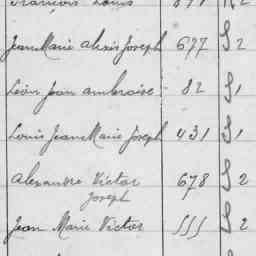 François Louis
Jean Marie alexis Joseph 677 S 2
Léon Jean ambroise - 82 S 1
Louis Jean Marie Joseph 431 S 1
Alexandre Victor 678 S 2
Joseph
Jean Marie Victor 555 S 2